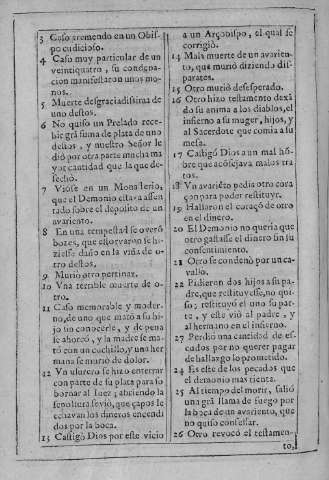 3 Caso tremendo en un Obis-
po cudicioso.
4 Caso muy particular de un
veintiquatro, su condena-
cion manifestaron unos mo-
nos.
5 Muerte desgraciadissima de
uno destos.
6 No quiso un Prelado rece-
bir grã suma de plata de uno
destos, y nuestro Señor le
dió por otra parte mucha ma
yor cantidad que la que de-
sechó.
7 Viose en un Monasterio,
que el Demonio estava assen
tado sobre el deposito de un
avariento.
8 En una tempestad se oyerõ
bozes, que estorvaron se hi-
ziesse daño en la viña de o-
tro destos.
9 Murió otro pertinaz.
10 Vna terrible muerte de o-
tro.
11 Caso memorable y moder-
no, de uno que mató a su hi-
jo sin conocerle, y de pena
se ahorcó, y la madre se ma-
tó con un cuchillo, y una her
mana se murió de dolor.
12 Vn usurero se hizo enterrar
con parte de su plata para so
bornar al Iuez; abriendo la
sepoltura se vio, que çapos le
echavan los dineros encendi
dos por la boca.
13 Castigó Dios por este vicio
a un Arçobispo, el qual se
corrigió.
14 Mala muerte de un avarien-
to, que murió diziendo dis-
parates.
15 Otro murió desesperado.
16 Otro hizo testamento dexã
do su anima a los diablos, el
infierno a su muger, hijos, y
al Sacerdote que comia a su
mesa.
17 Castigó Dios a un mal hõ-
bre que acõsejava malos tra
tos.
18 Vn avariẽto pedia otro cora
çon para poder restituyr.
19 Hallaron el coraçõ de otro
en el dinero.
20 El Demonio no queria que
otro gastasse el dinero sin su
consentimiento.
21 Otro se condenó por un ca-
vallo.
22 Pidieron dos hijos a su pa-
dre, que restituyesse, no qui-
so; restituyó el uno su par-
te, y este vió al padre, y
al hermano en el infierno.
23 Perdió una cantidad de es-
cudos por no querer pagar
de hallazgo lo prometido.
24 Es este de los pecados que
el demonio mas tienta.
25 Al tiempo del morir, salió
una grã llama de fuego por
la boca de un avariento, que
no quiso confessar.
26 Otro revocó el testamen-
to,